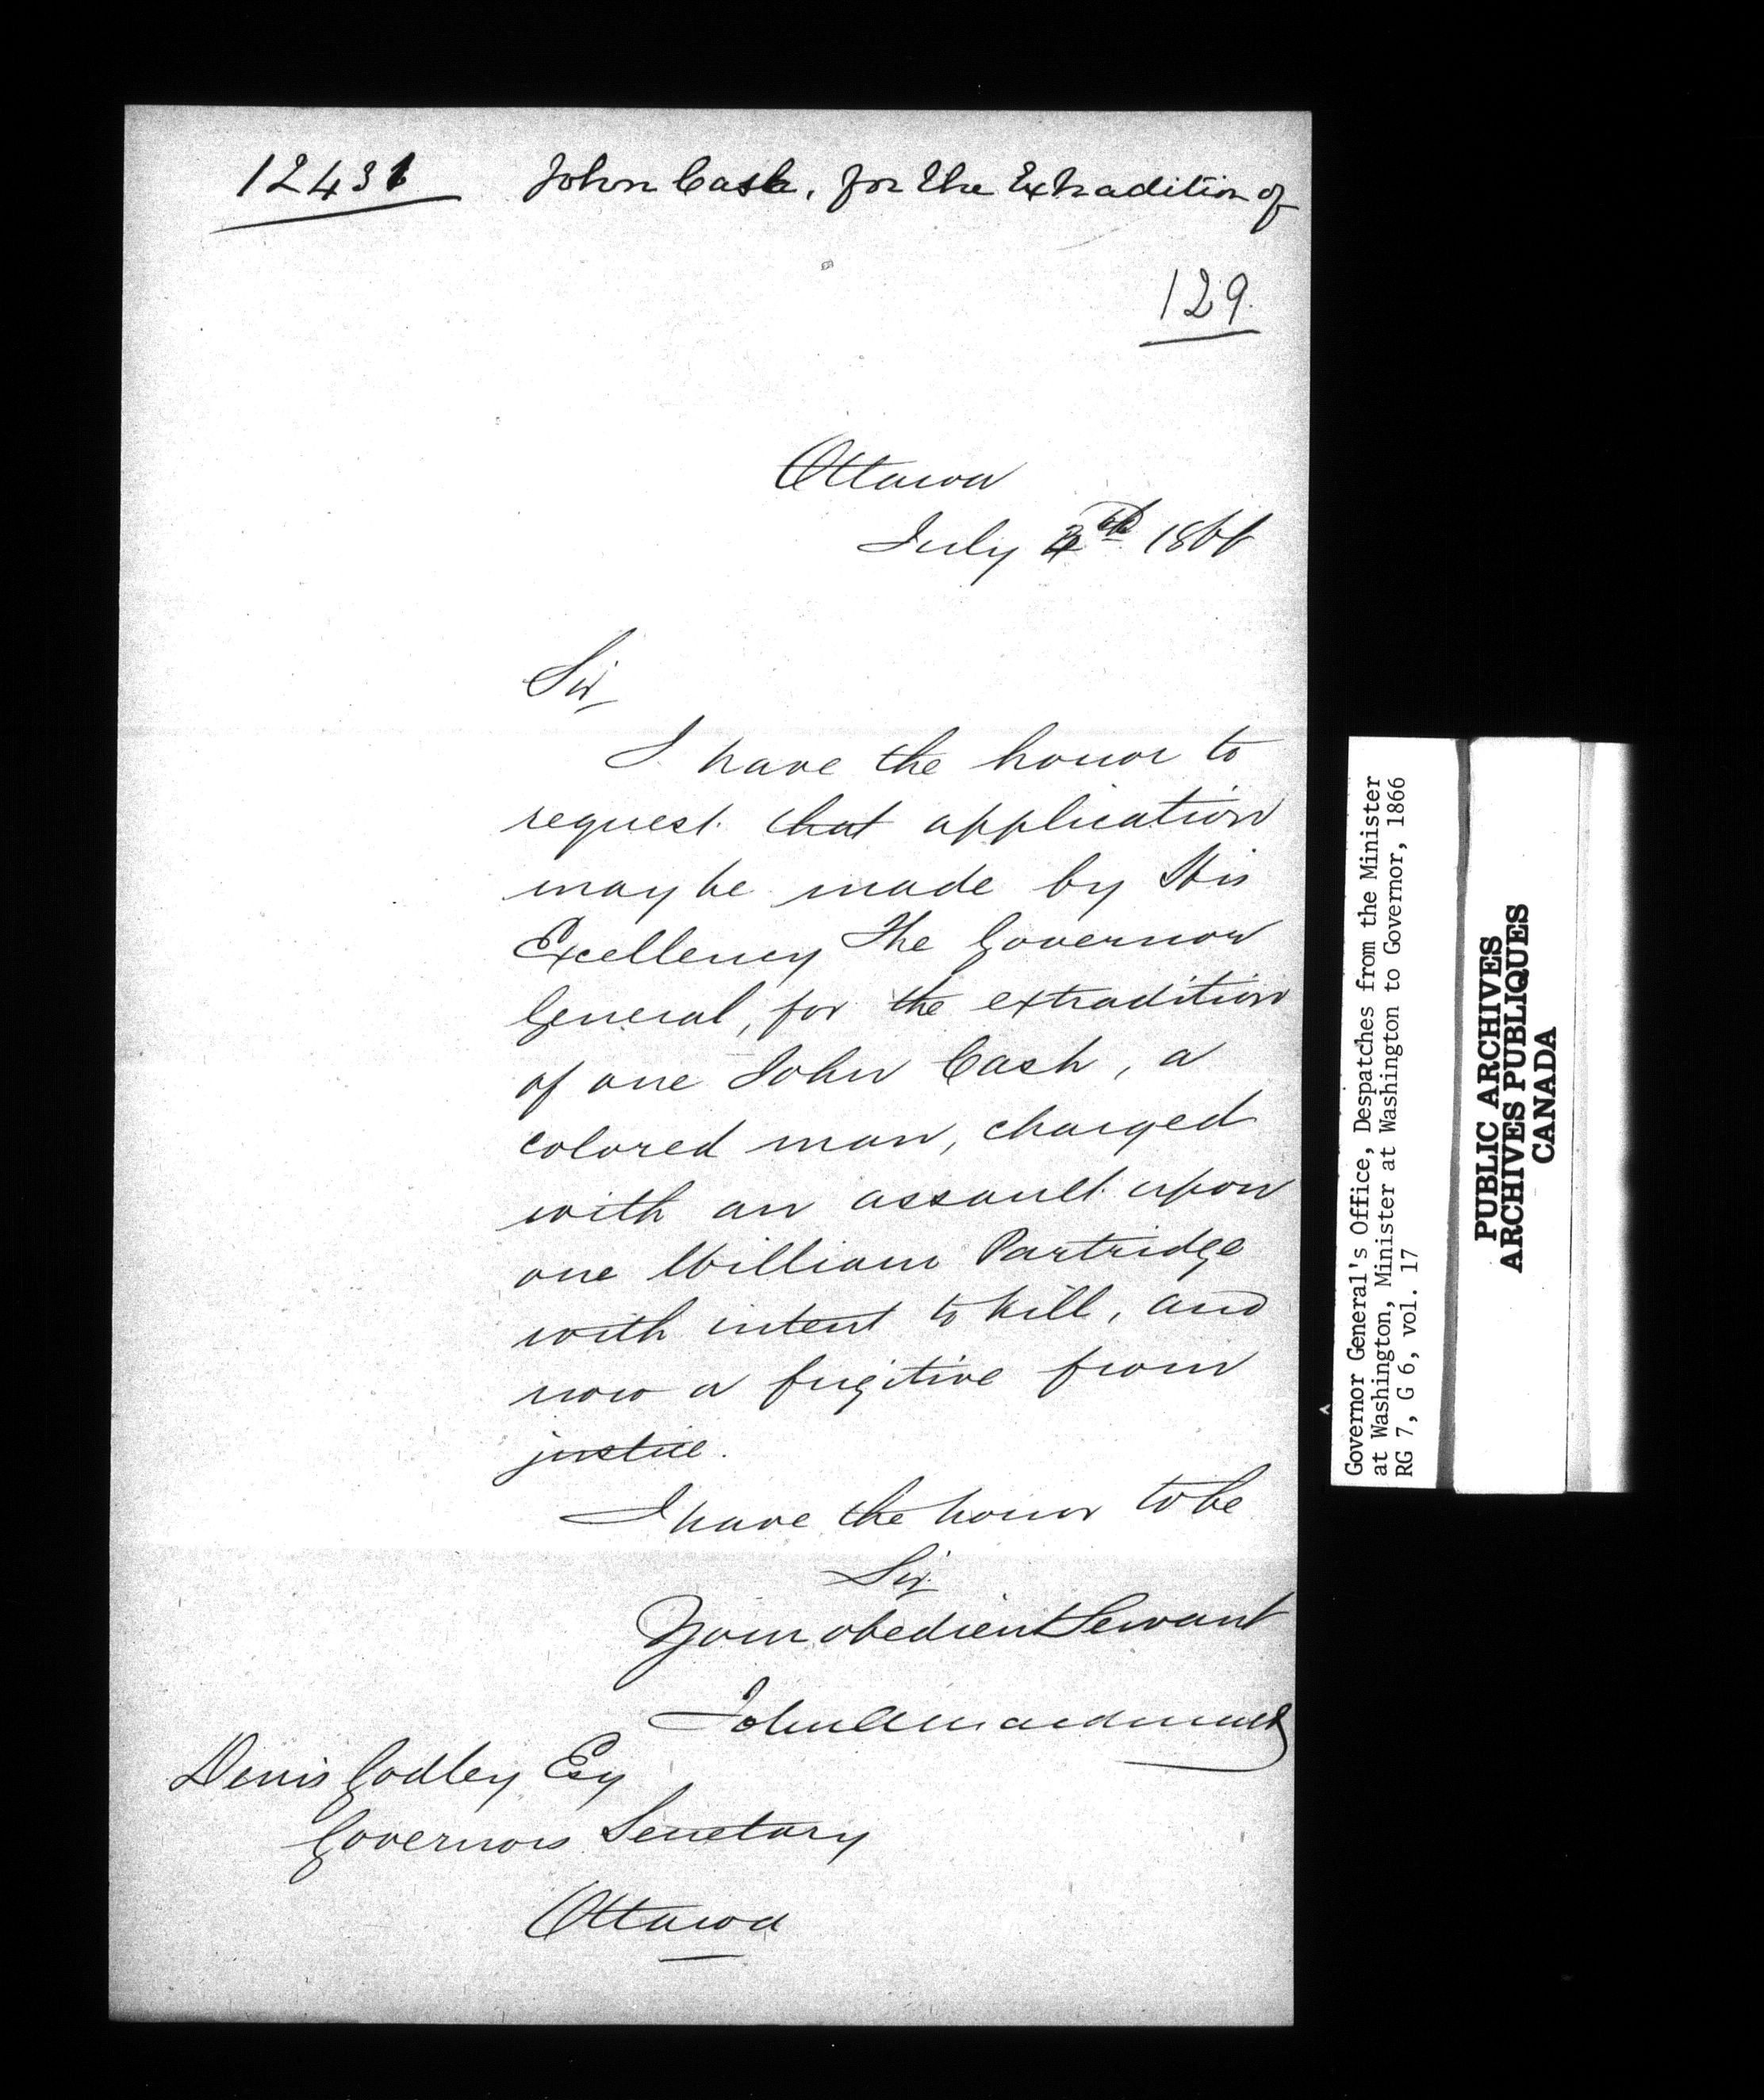 12431 John Cash, for the Extradition of
129.
Ottawa
July 4th 1866
Sir,
I have the honor to
request that application
may be made by His
Excellency The Governor
General, for the extradition
of one John Cash, a
colored man, charged
with an assault upon
one William Partridge
with intent to kill, and
now a fugitive from
justice.
I have the honor to be
Sir
Your obedient Servant
John A Macdonald
Denis Godley Esq
Governors Secretary
Ottawa
Governor General's Office, Despatches from the Minister
at Washington, Minister at Washington to Governor, 1866
RG 7, G 6, vol. 17
PUBLIC ARCHIVES
ARCHIVES PUBLIQUES
CANADA